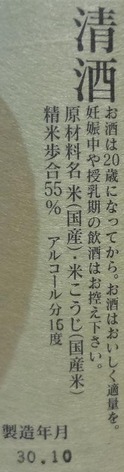 清酒
お酒は20歳になってから。お酒はおいしく適量を。
妊娠中や授乳期の飲酒はお控え下さい。
原材料名 米(国産)・米こうじ(国産米)
精米歩合55% アルコール分15度
製造年月
30.10